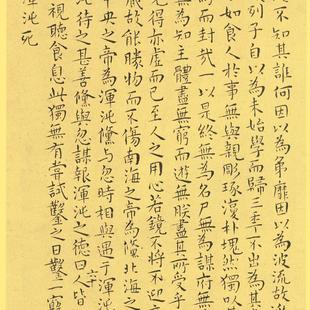 不知其誰何因以為弟靡因以為波流故逃
列子自以為未始學而歸三年不出為其
如食人於事無與親彫琢復朴塊然獨以其
為而封哉一以是終無為名尸無為謀府無
無為知主體盡無窮而遊無朕盡其所受乎
見得亦虛而已至人之用心若鏡不將不迎
藏故能勝物而不傷南海之帝為儵北海之
中央之帝為渾沌儵與忽時相與遇于渾沌
沌待之甚善儵與忽謀報渾沌之德曰人皆
視聽食息此獨無有嘗試鑿之日鑿一竅
渾沌死